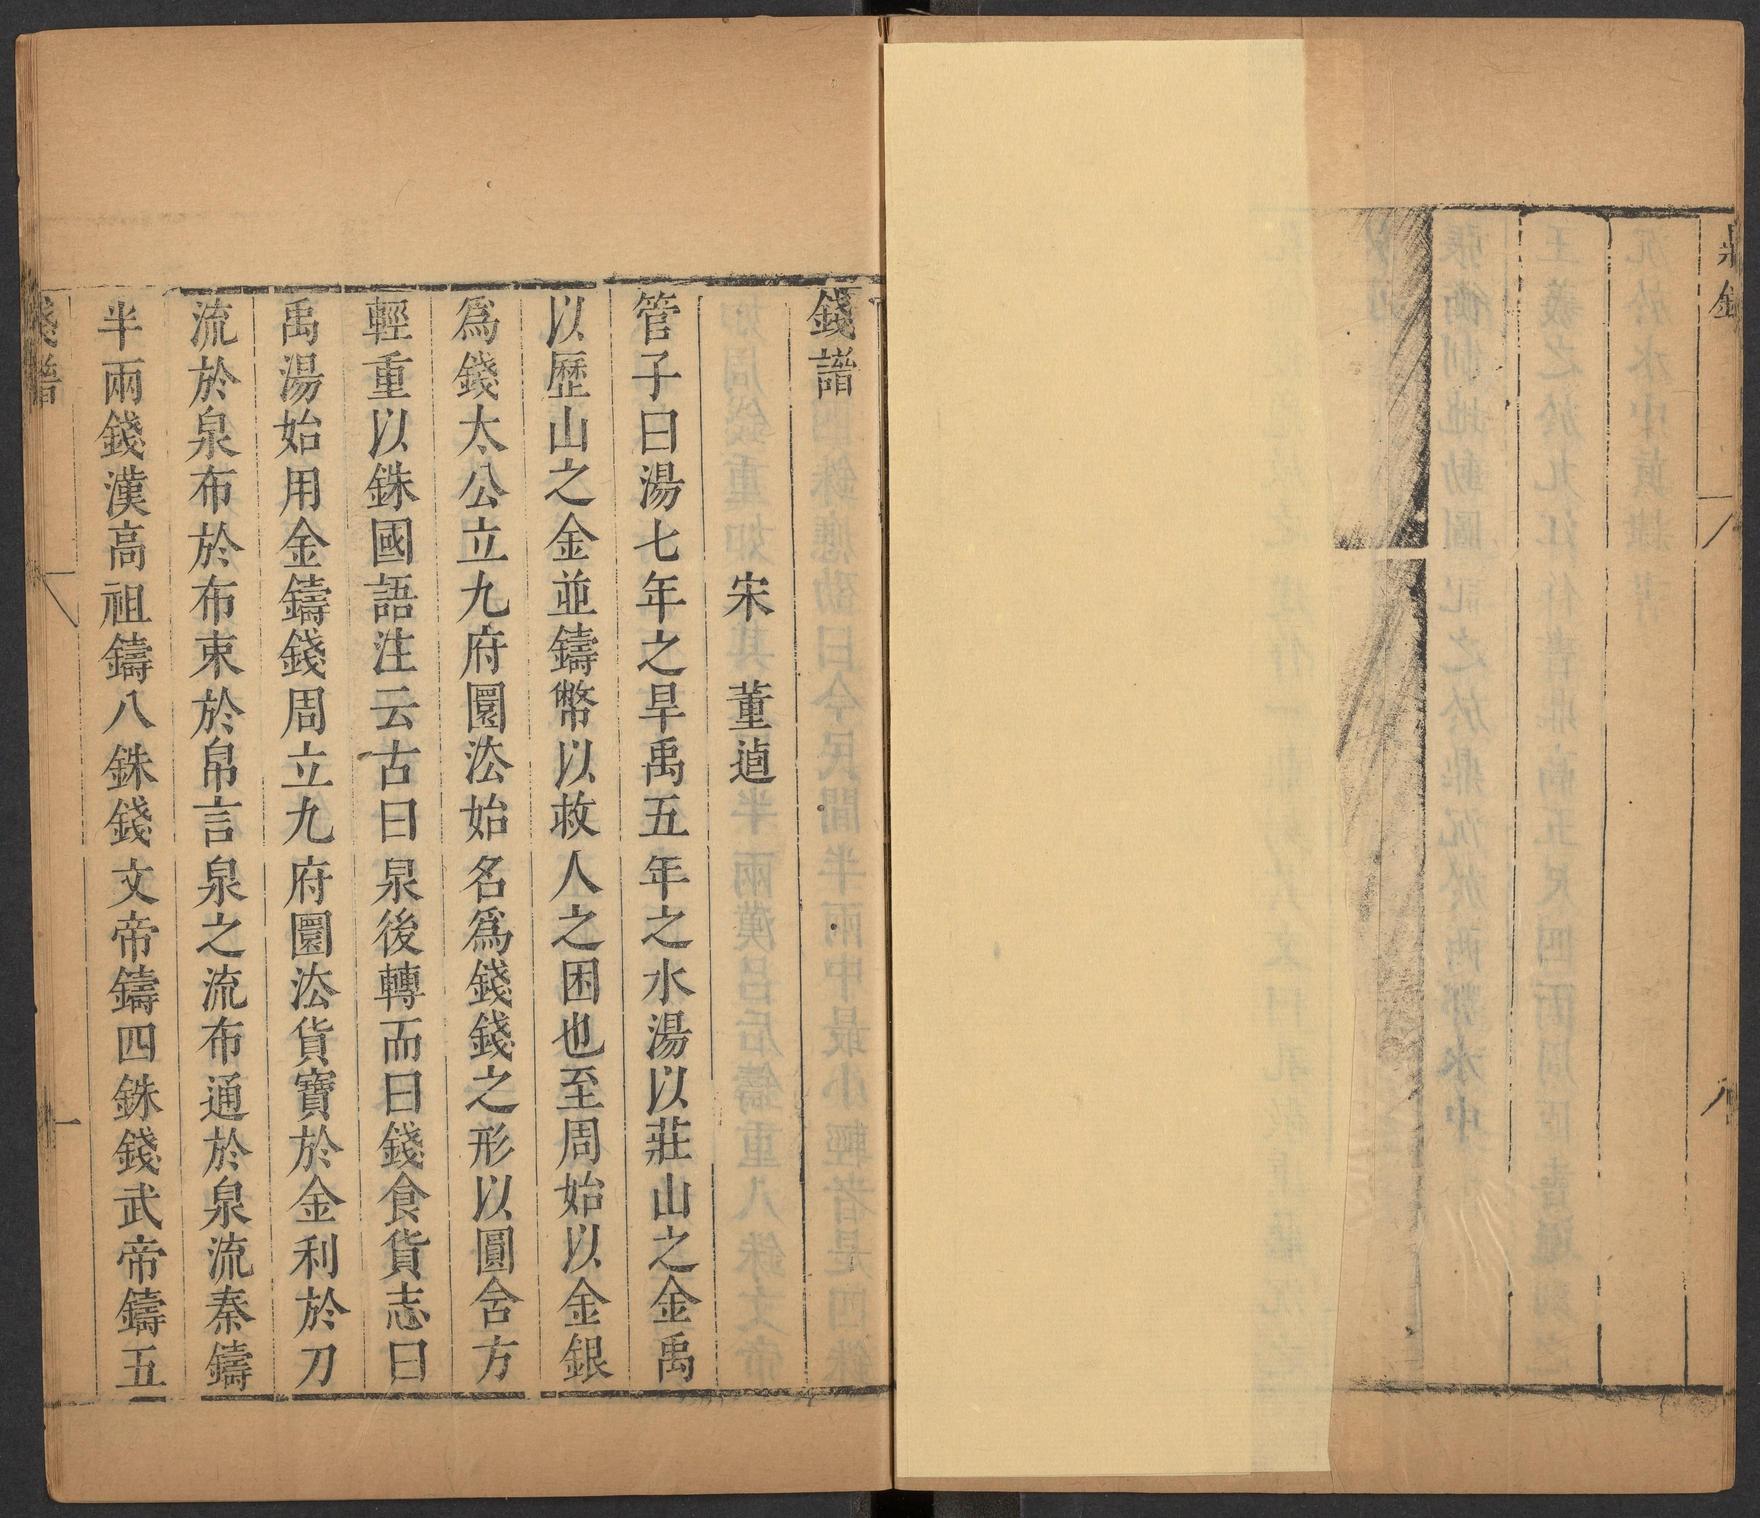 鼎錄
八
錢譜
宋　董逌
管子曰湯七年之旱禹五年之水湯以莊山之金禹
以歷山之金並鑄幣以救人之困也至周始以金銀
爲錢太公立九府圜法始名爲錢錢之形以圓含方
輕重以銖國語注云古曰泉後轉而曰錢食貨志曰
禹湯始用金鑄錢周立九府圜法貨寶於金利於刀
流於泉布於布束於帛言泉之流布通於泉流秦鑄
半兩錢漢高祖鑄八銖錢文帝鑄四銖錢武帝鑄五
錢譜
一